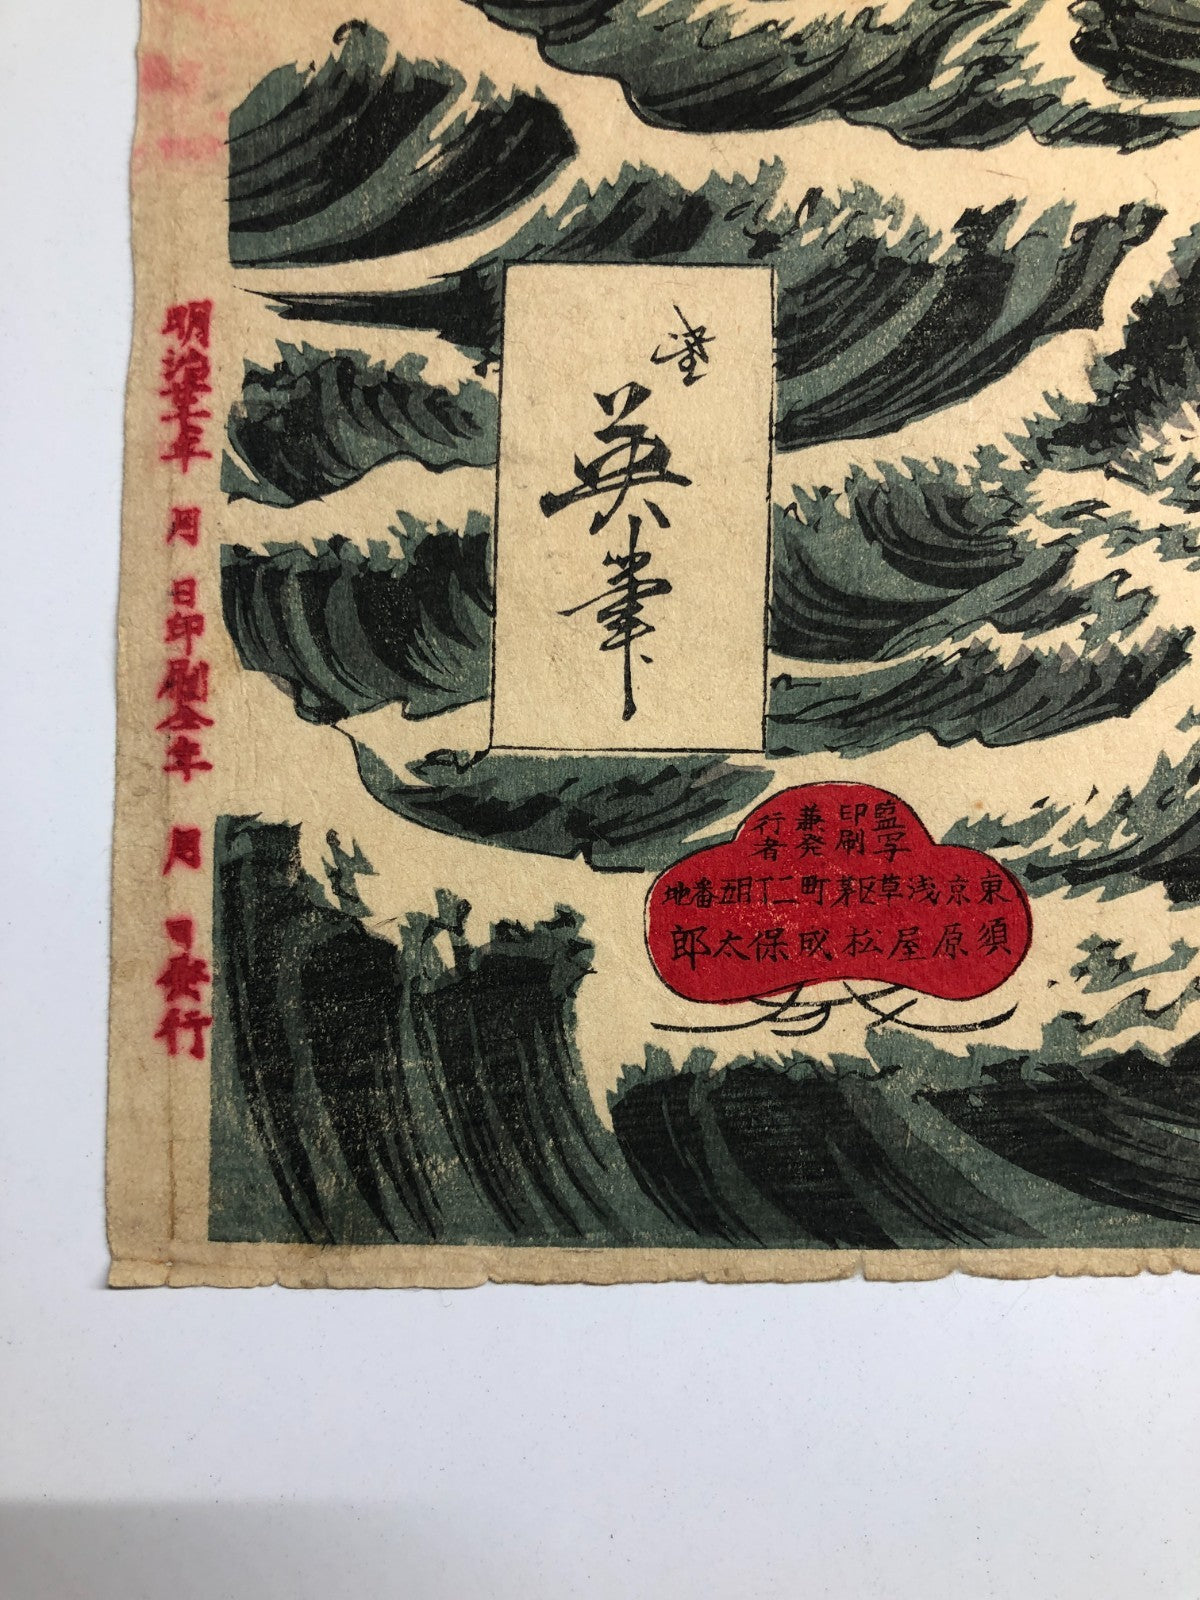 英筆
監写
印刷
兼発
行者
東京浅草区茅町二丁目五番地
須原屋松成保太郎
明治 年 月 日印刷仝年 月 日発行